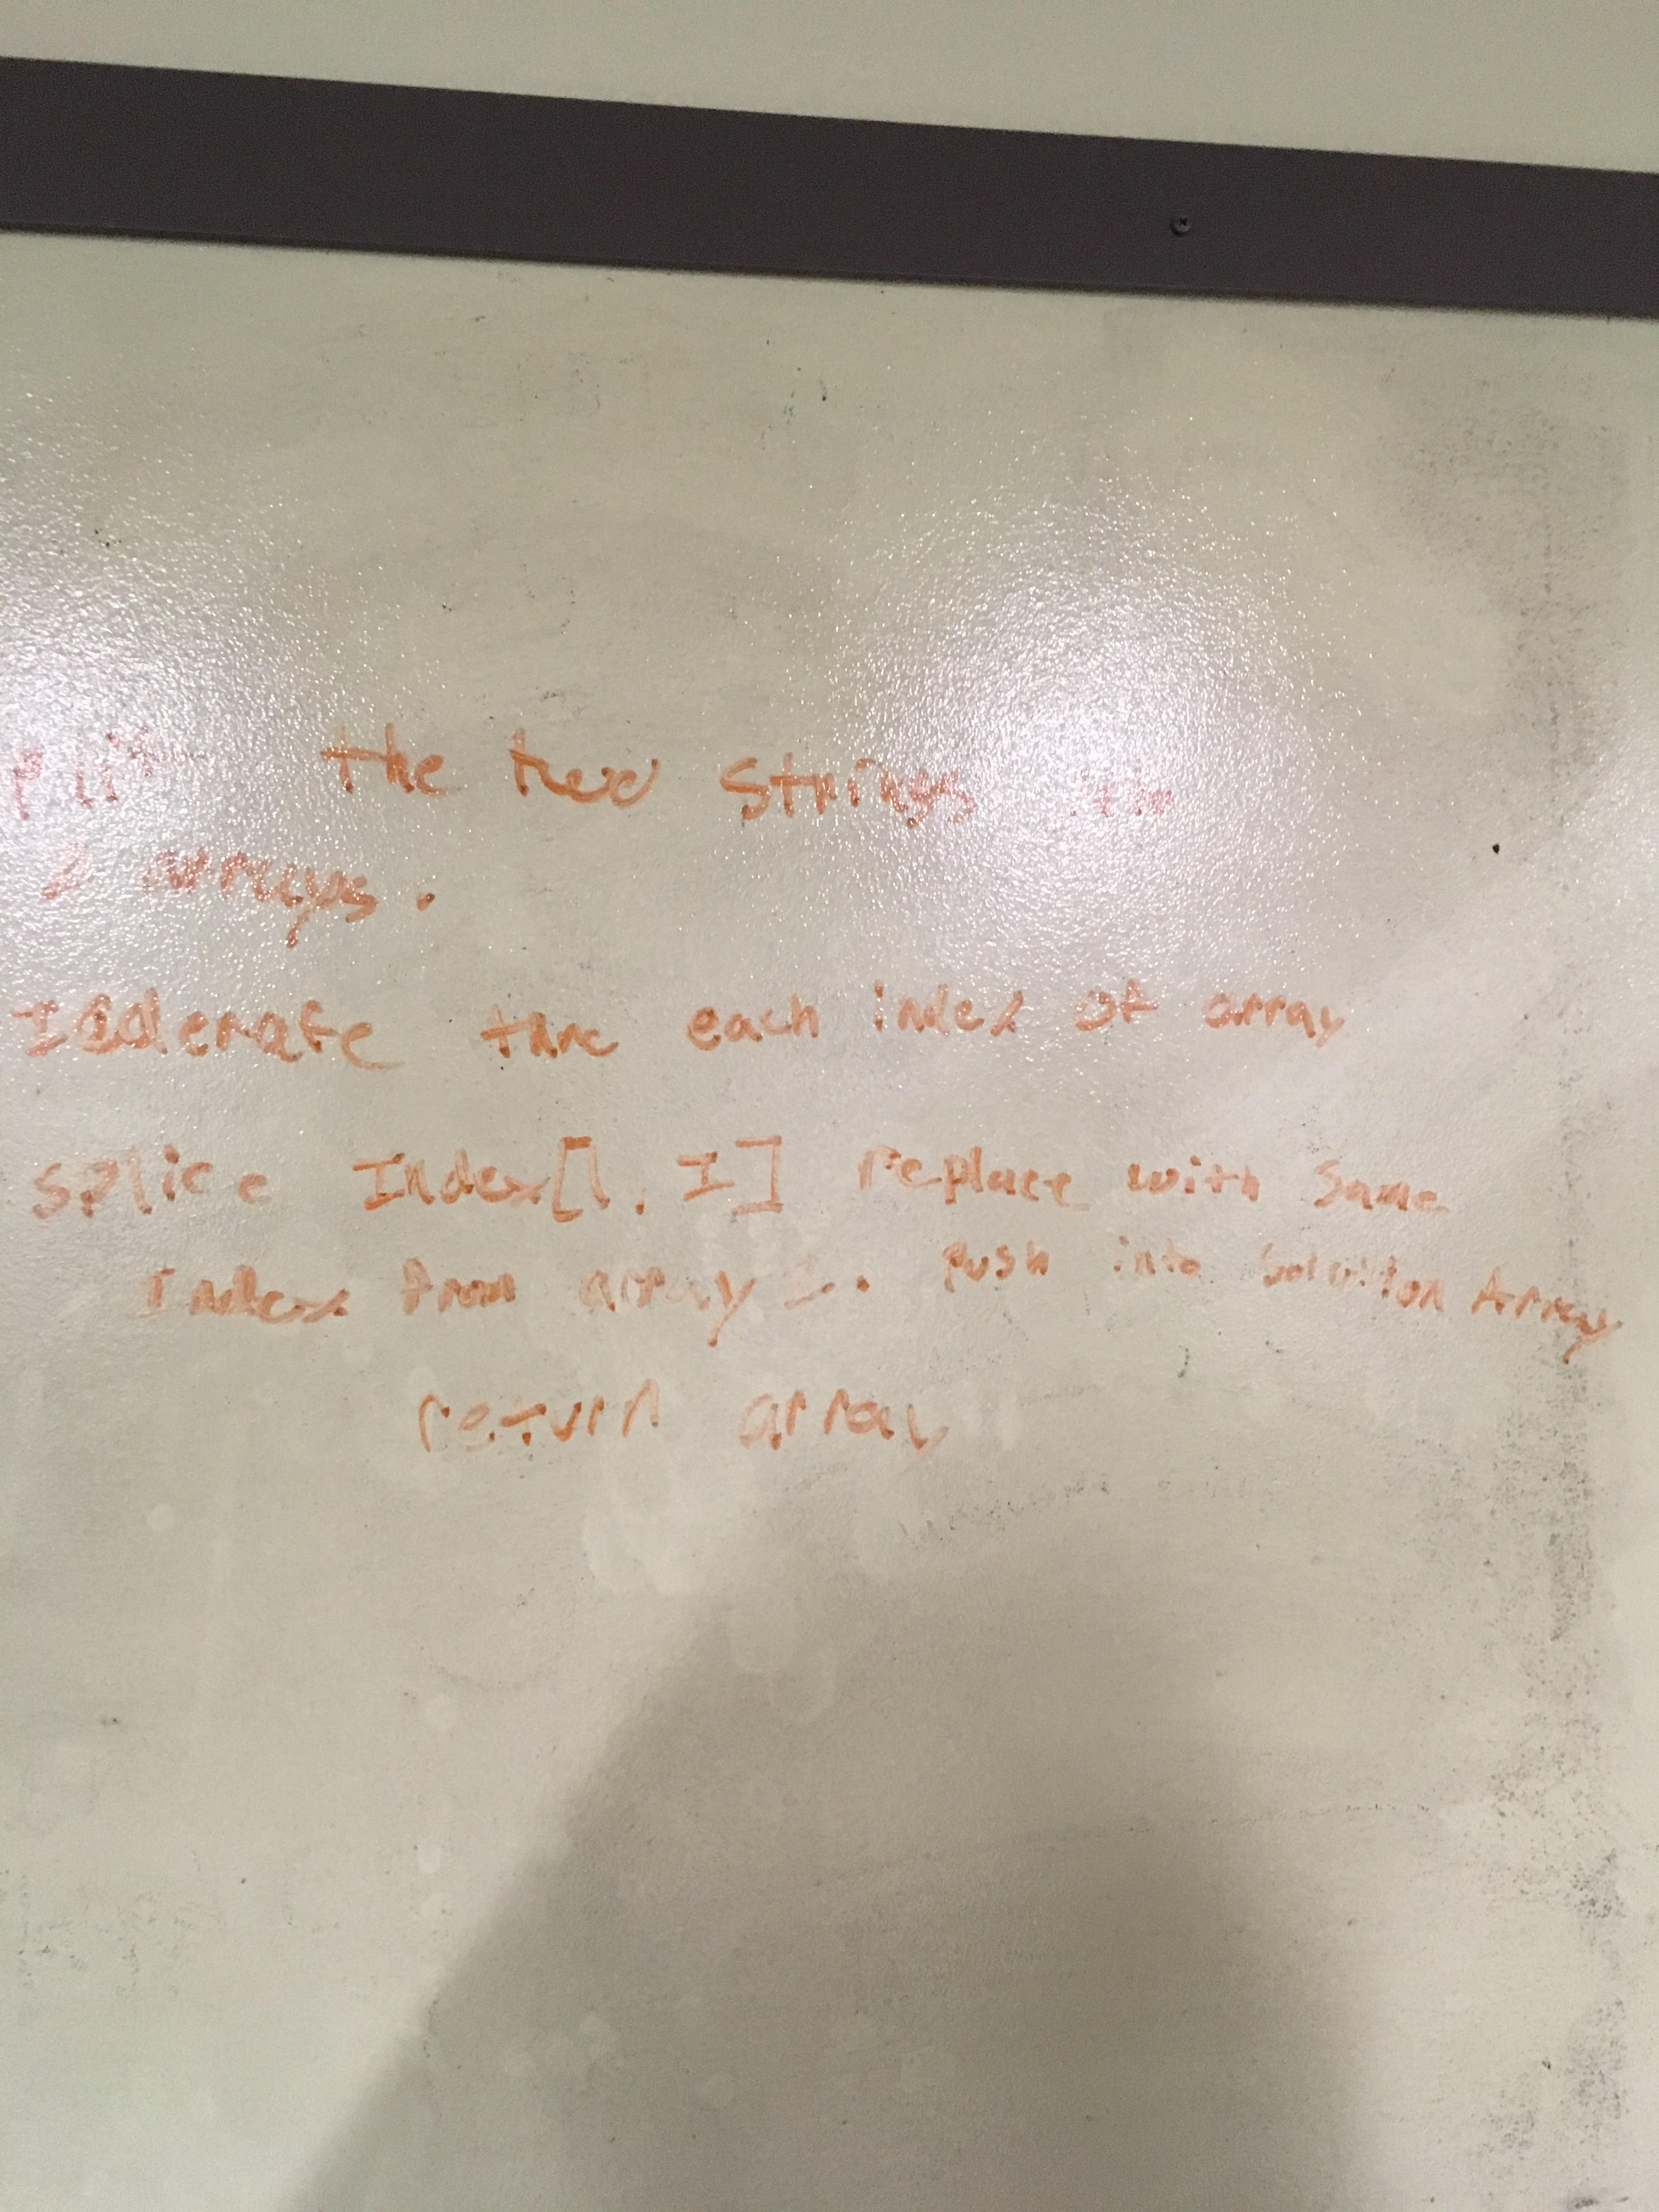 plit the two strings
2 arrays.
Idderate thru each index of array
splice Index[1, I] replace with same
Index from array 2. Push into Solution Array
return array